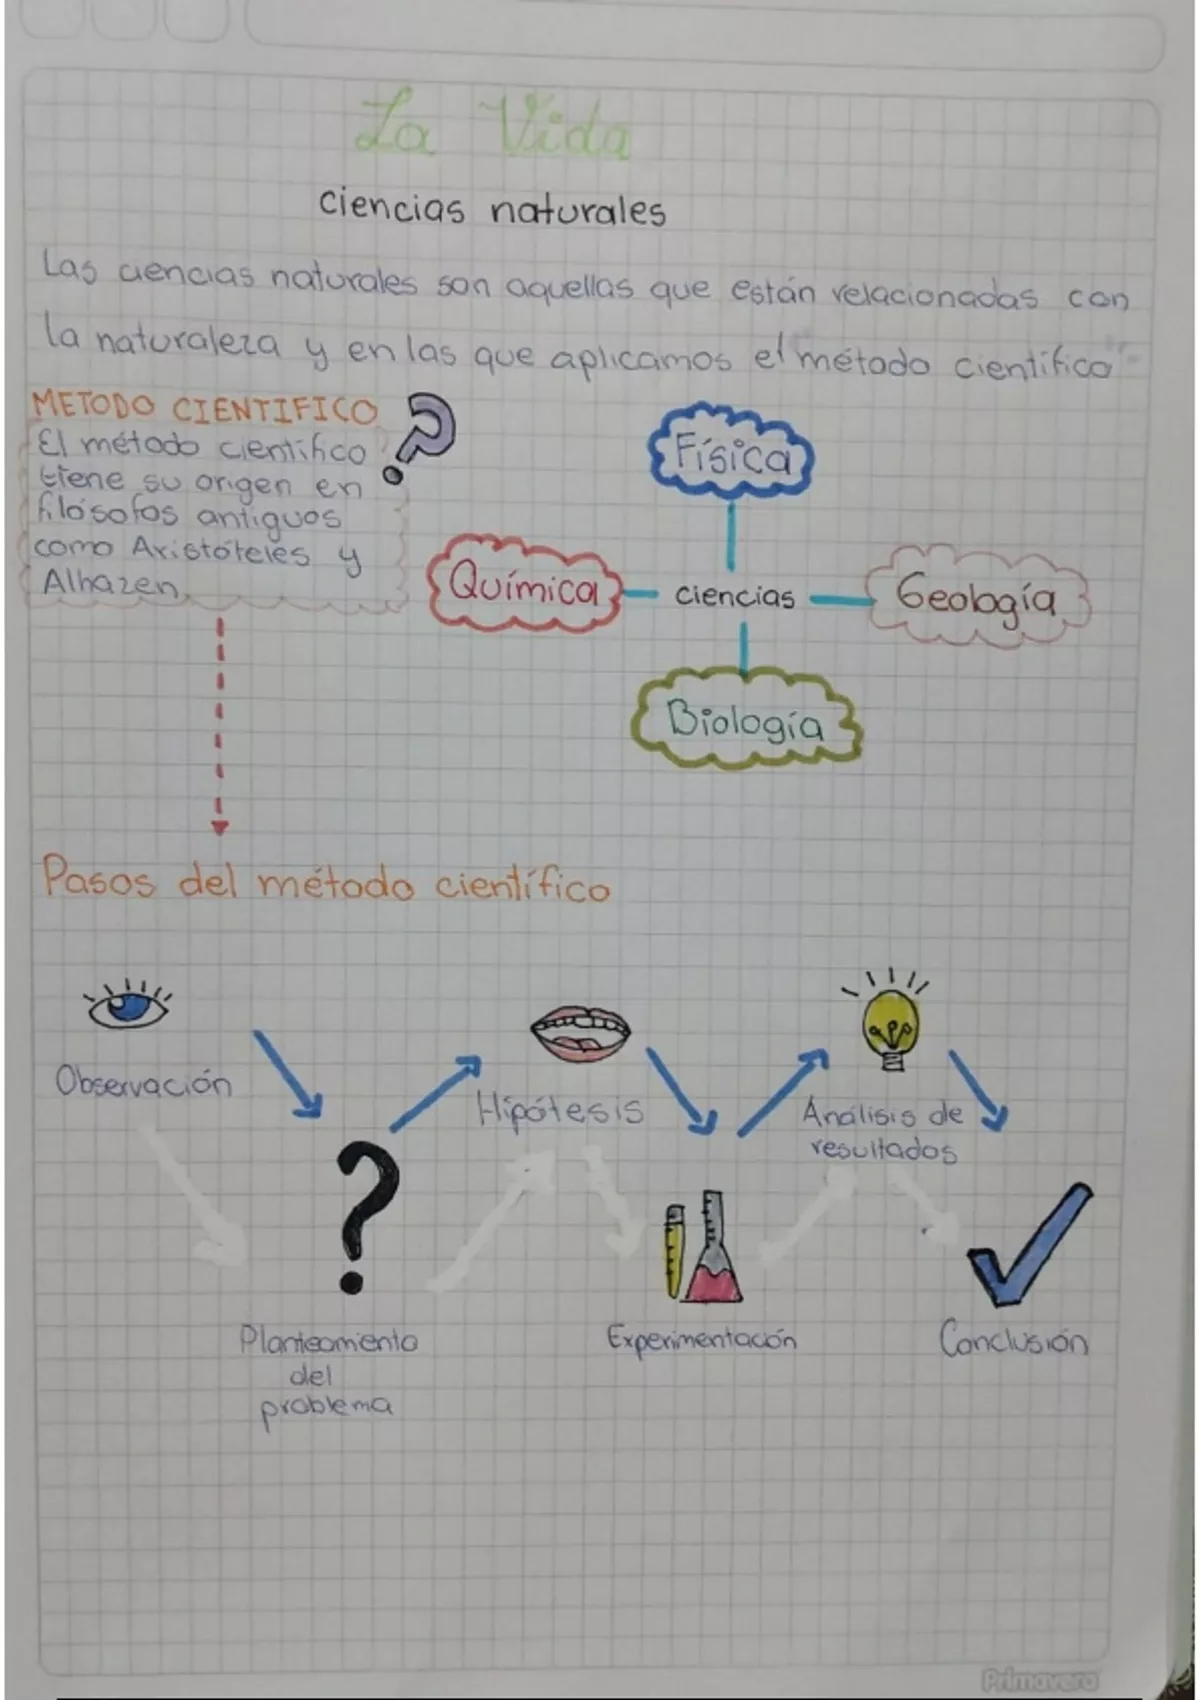 La Vida
ciencias naturales
Las ciencias naturales son aquellas que están relacionadas con
la naturaleza y en las que aplicamos el método científico
METODO CIENTIFICO
El método científico
tiene su origen en
filósofos antiguos
como Aristóteles y
Alhazen
Física
Química
ciencias
Geología
Biología
Pasos del método científico
Observación
Hipótesis
Análisis de
resultados
Planteamiento
del
problema
Experimentación
Conclusión
Primavera